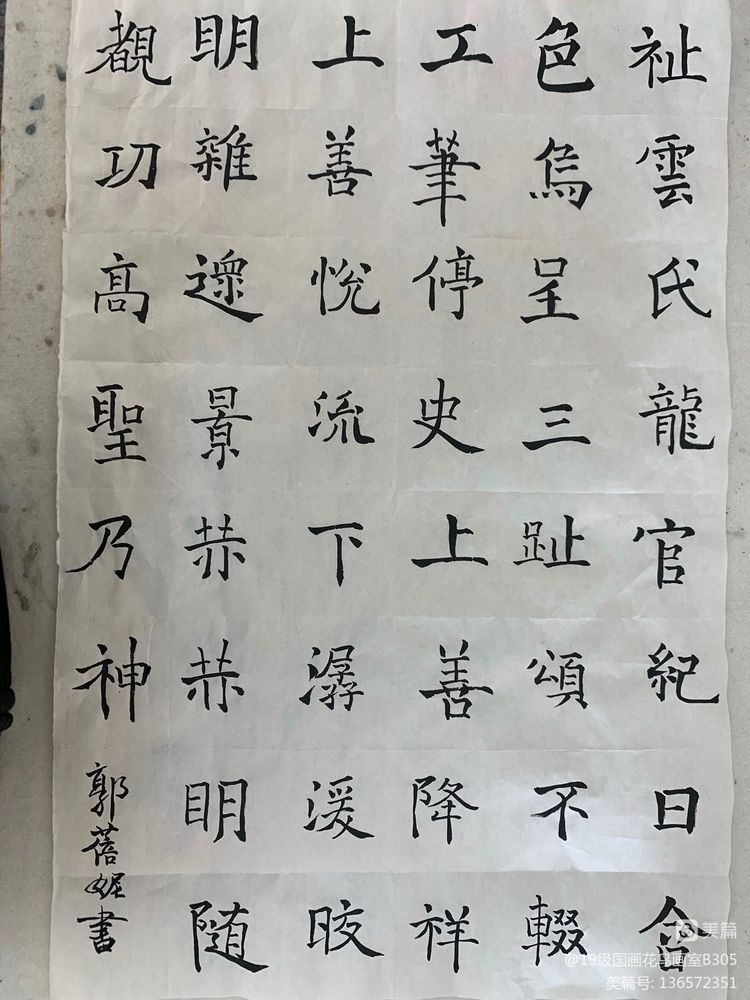 祉雲氏龍官紀日含
色烏呈三趾頌不輟
工筆停史上善降祥
上善悦流下潺湲皎
明雜遝景赫赫明随
覩功高聖乃神
郭蓓妮書
美篇
@19级国画花鸟画室B305
美篇号: 136572351